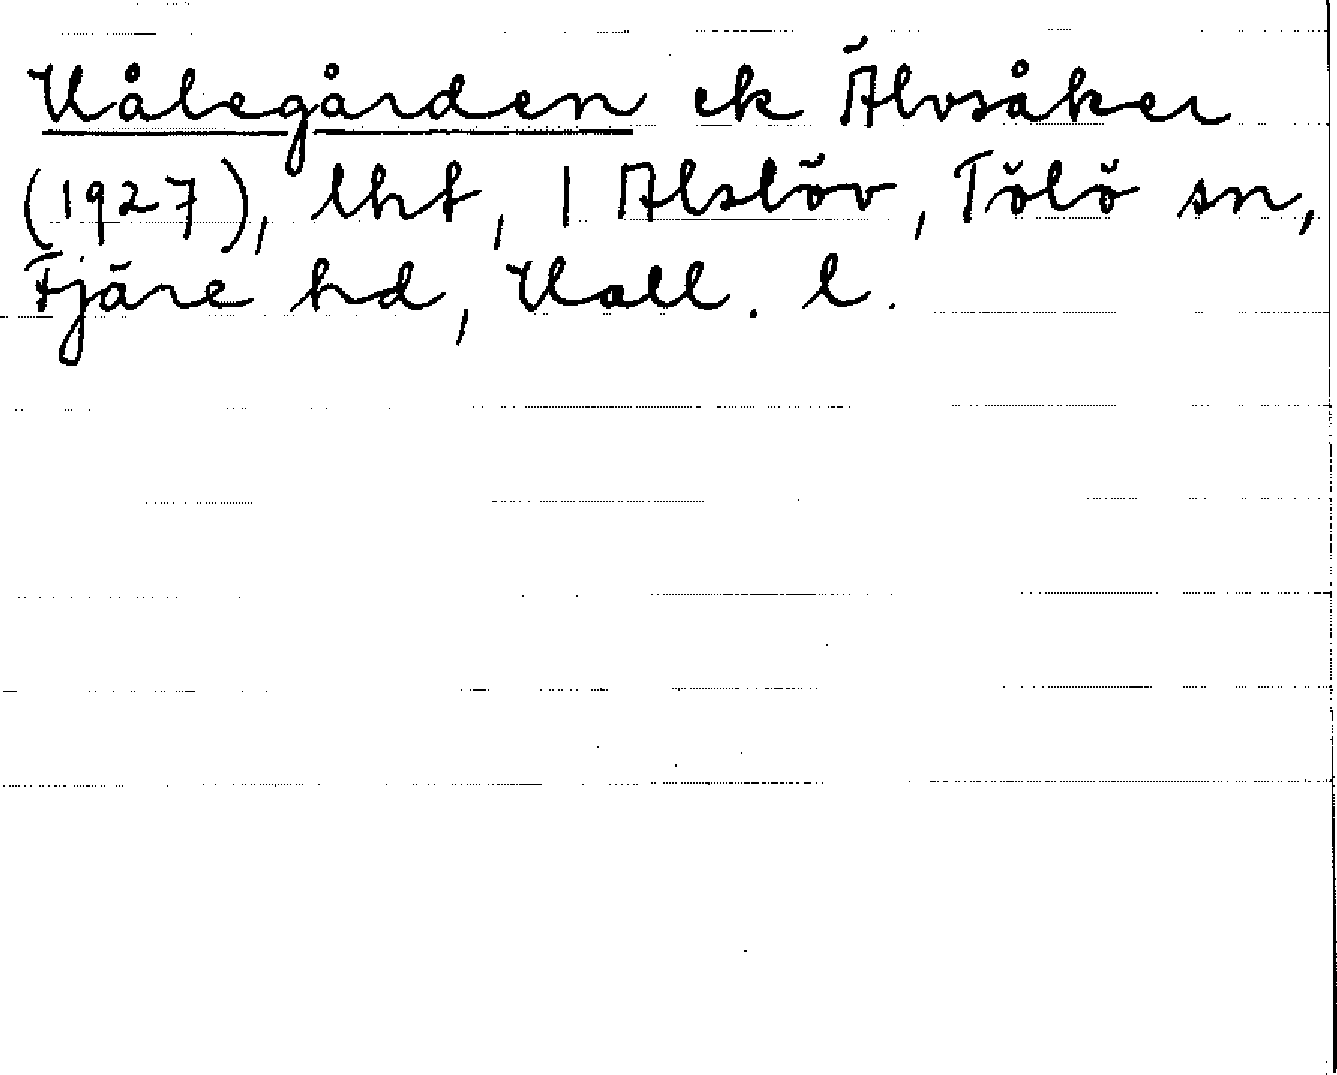 Hålegården ek Älvsåker
(1927), lht, 1 Alslöv, Tölö sn,
Fjäre hd, Hall. l.